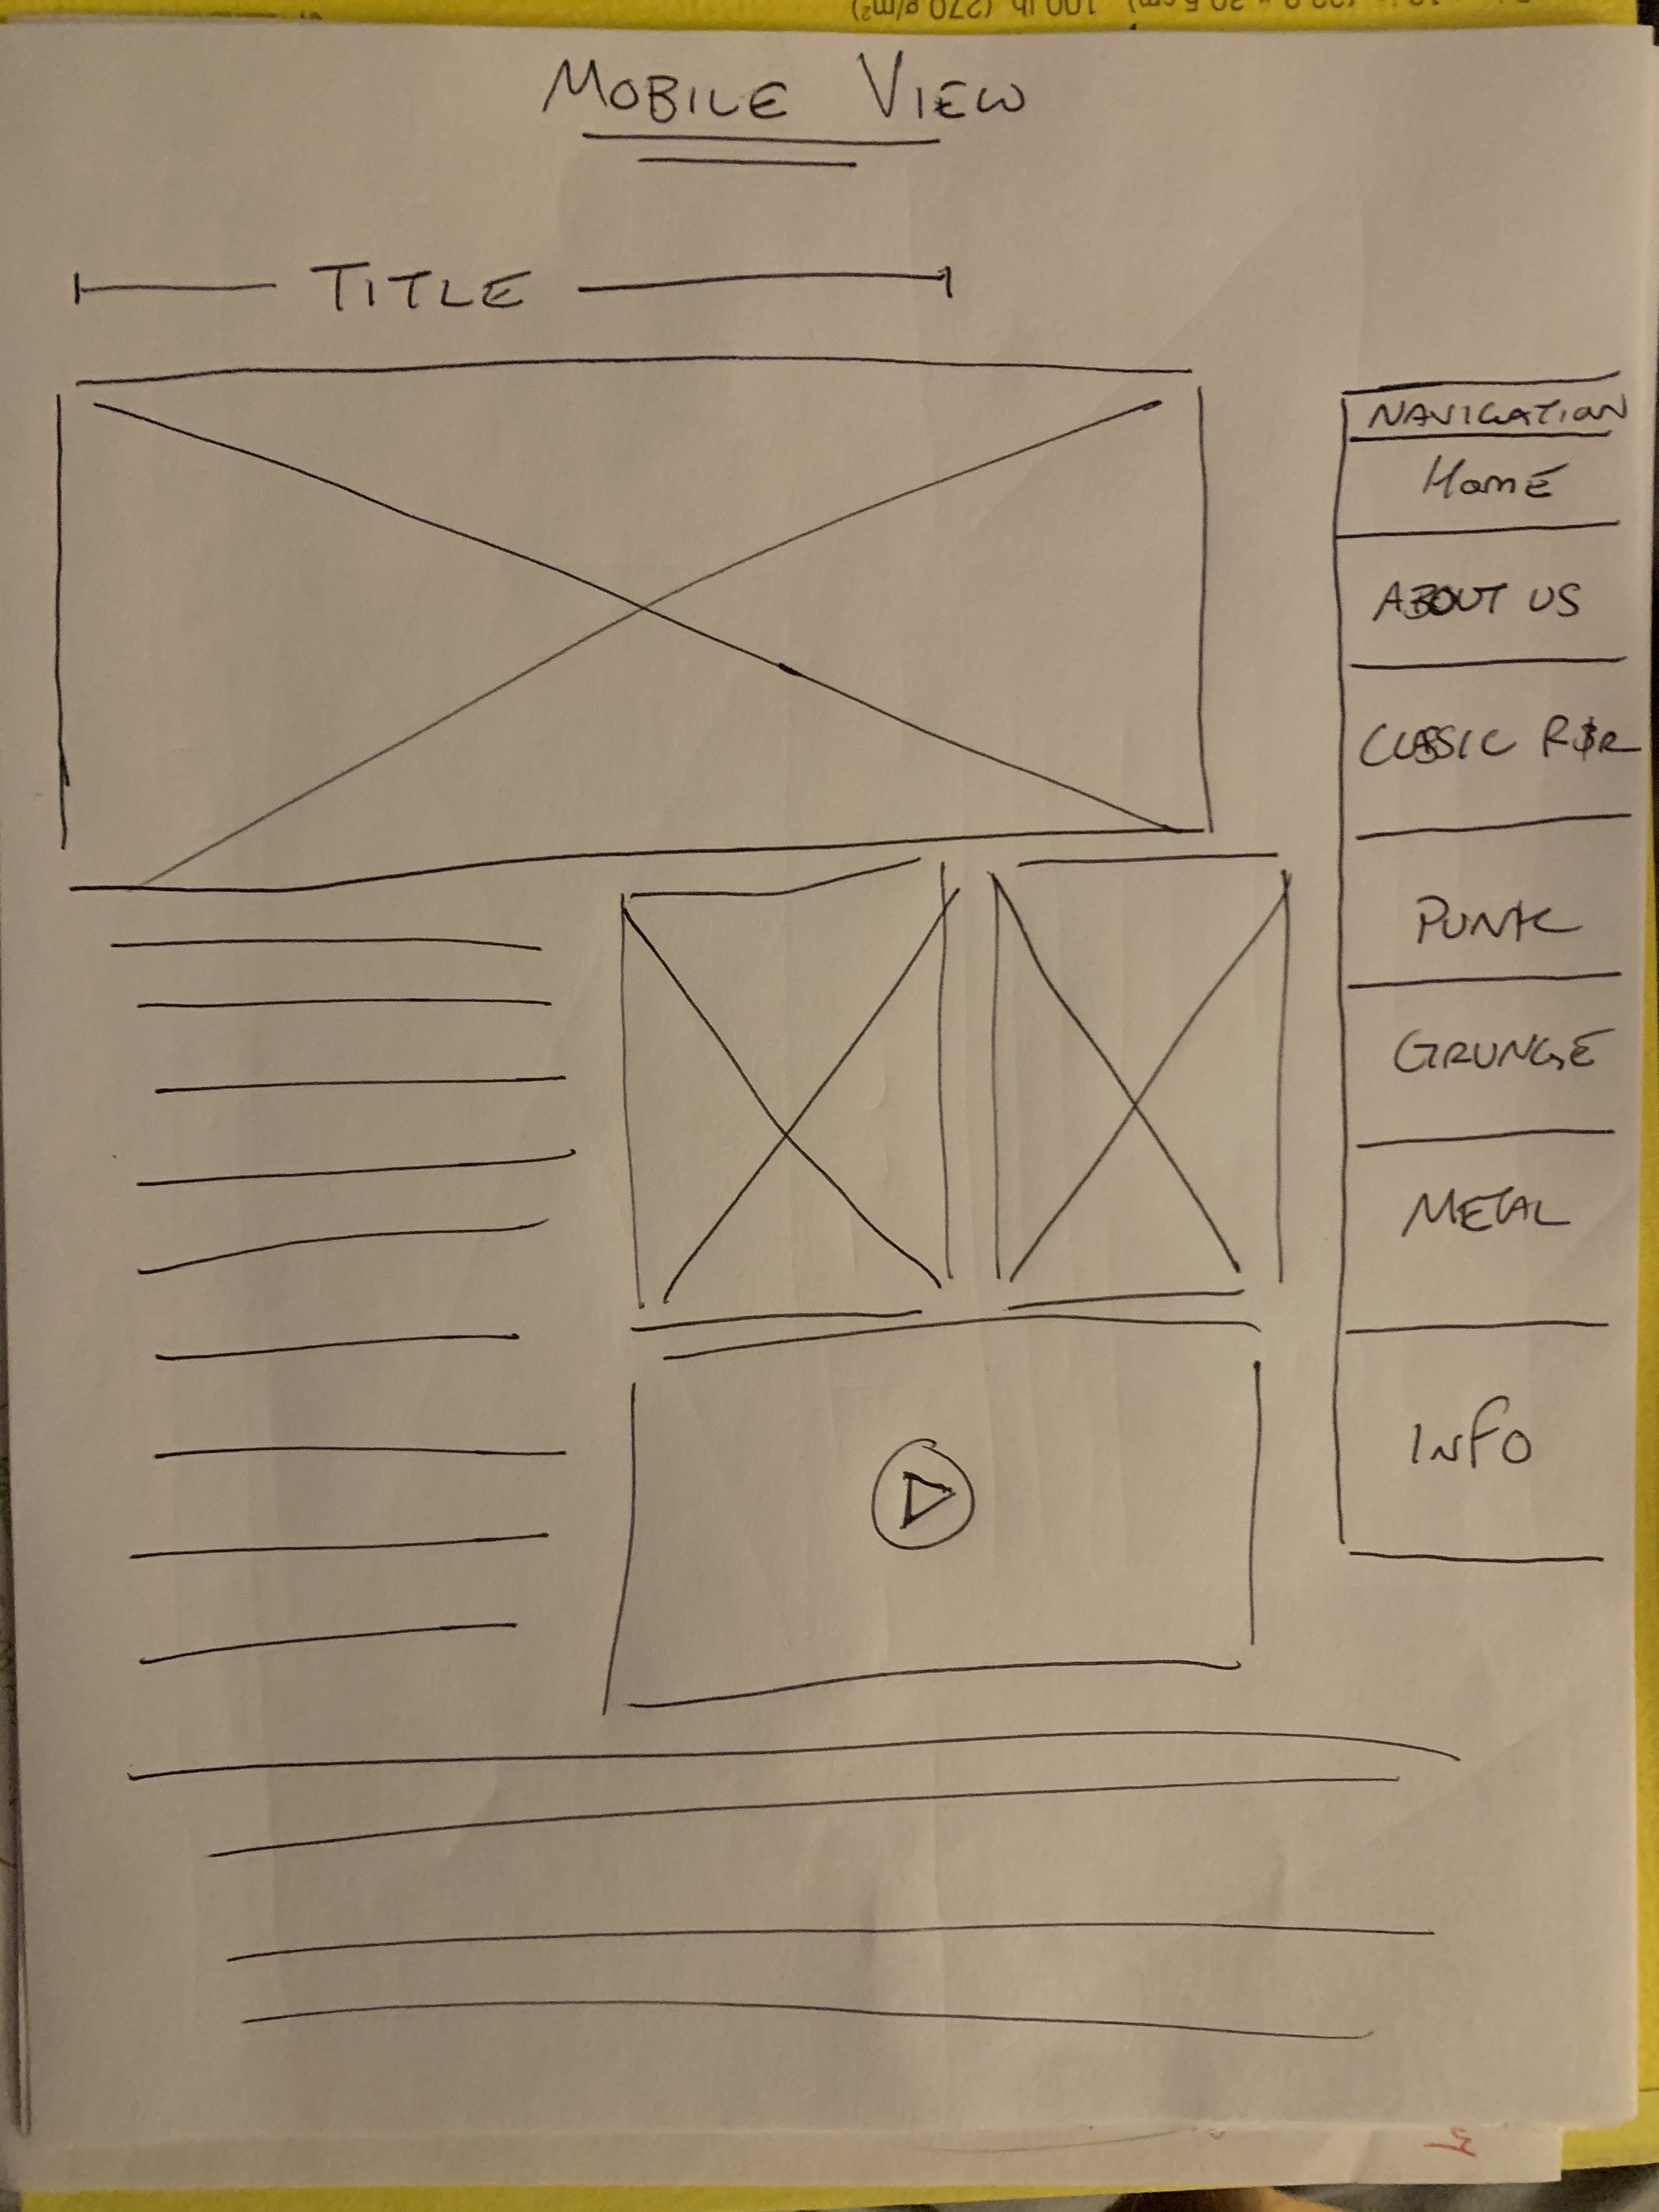 MOBILE VIEW
TITLE
NAVIGATION
HOME
ABOUT US
CLASSIC R&R
PUNK
GRUNGE
METAL
INFO
100 lb (270 g/m²)